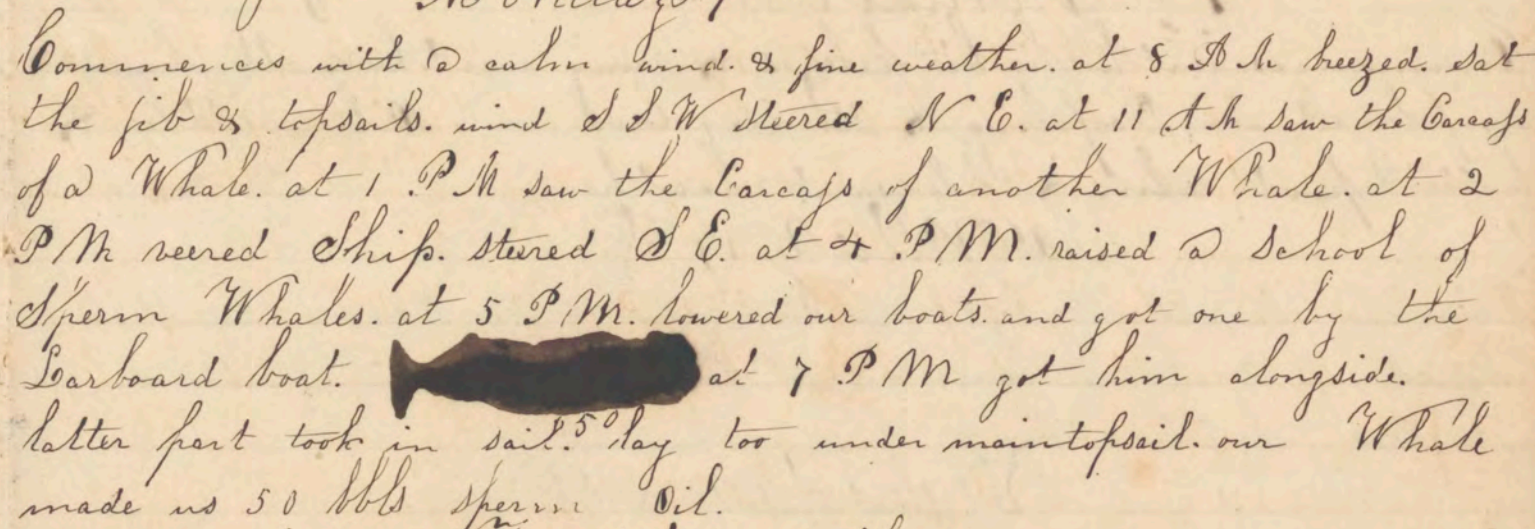 Monday
Commences with a calm wind. & fine weather. at 8 A M breezed. sat
the jib & topsails. wind S S W steered N E. at 11 A M saw the Carcass
of a Whale. at 1 P M saw the Carcass of another Whale. at 2
P M veered Ship. steered S E. at 4 P.M. raised a school of
Sperm Whales. at 5 P.M. lowered our boats. and got one by the
Larboard boat. at 7 P M got him alongside.
latter part took in sail. 50 lay too under maintopsail. our Whale
made us 50 bbls sperm Oil.